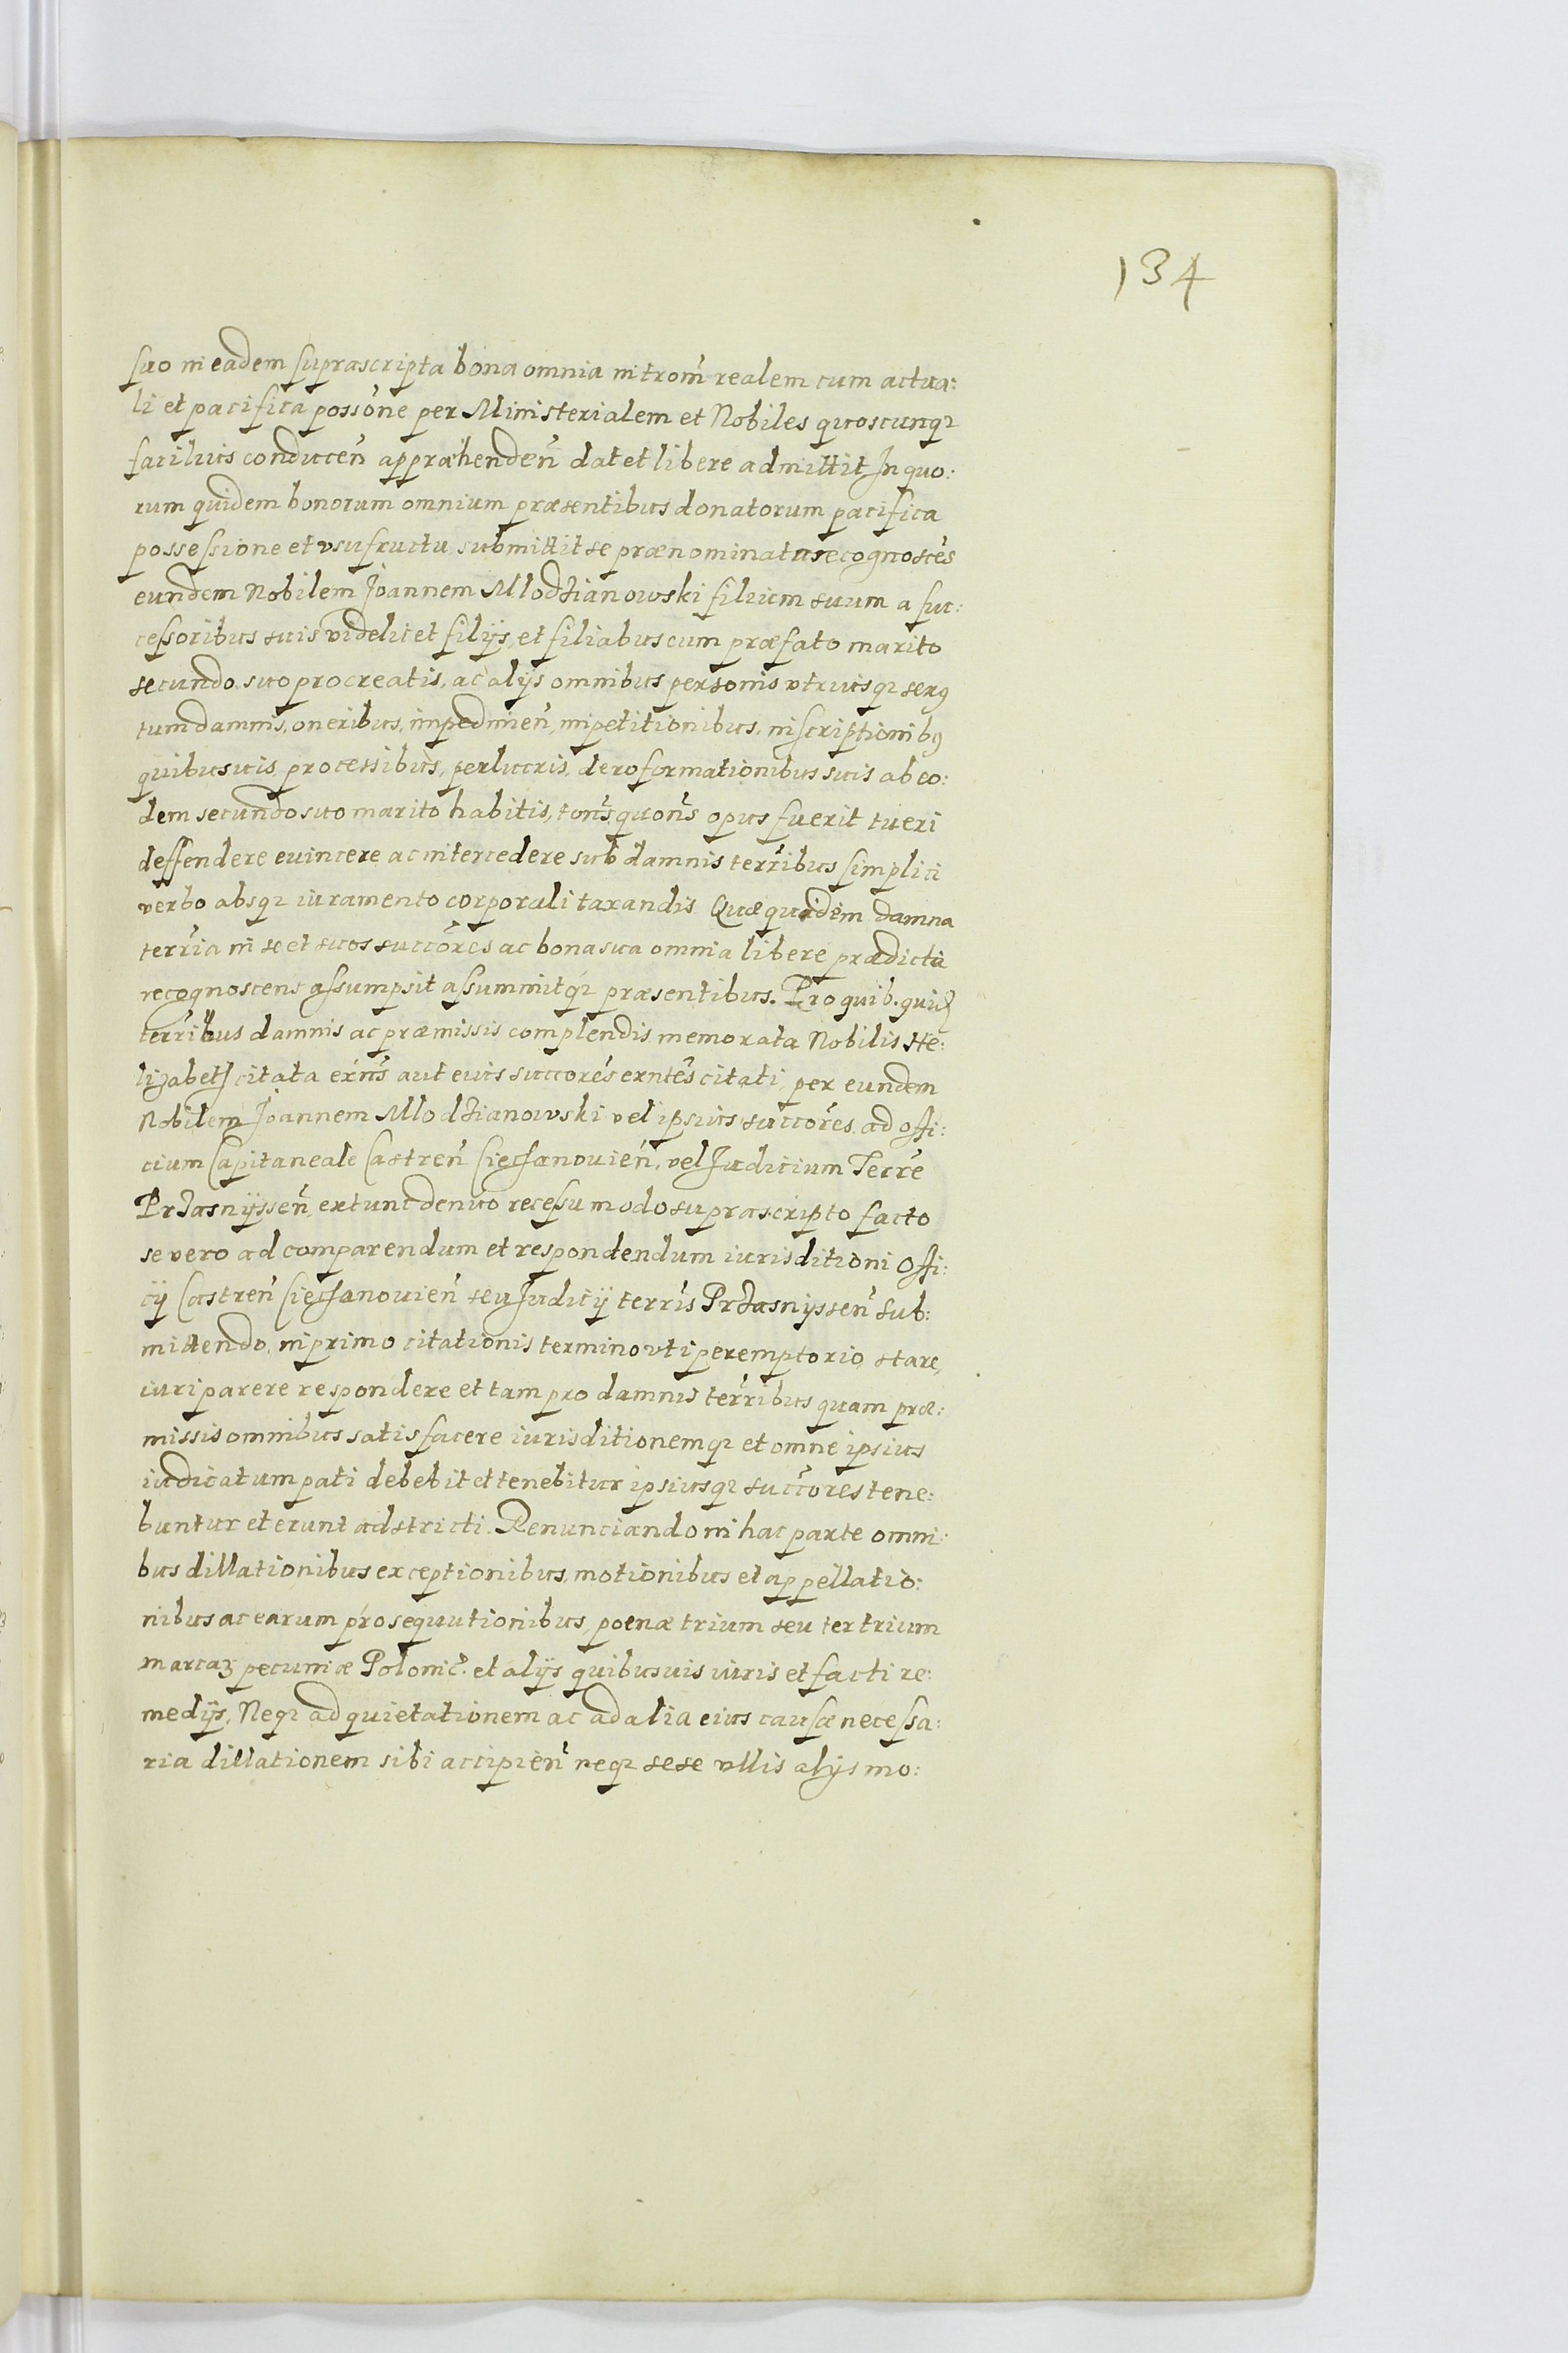 134
suo in eadem suprascripta bona omnia introm̄ realem cum actua:
li et pacifica possōne per Ministerialem et Nobiles quoscunq3
facilius conducen̄ appræhenden̄ dat et libere admittit In quo:
rum quidem bonorum omnium præsentibus donatorum pacifica
possessione et vsufructu submittit se prænominata recognoscēs
eundem Nobilem Joannem Mlodzianowski filium suum a suc:
cessoribus suis videlicet filijs, et filiabus cum præfato marito
secundo suo procreatis, ac alijs omnibus personis vtriusq3 sex9
tum damnis, oneribus, impedimen̄, impetitionibus, inscriptionib9
quibusuis processibus, perlucris, de roformationibus suis ab eo:
dem secundo suo marito habitis, tōns quōns opus fuerit tueri
deffendere euincere ac intercedere sub damnis terr̄ibus simplici
verbo absq3 iuramento corporali taxandis Quæ quidem damna
terr̄ia in se et suos succōres ac bona sua omnia libere prædicta
recognoscens assumpsit assummitq3 præsentibus. Pro quib. quid
terr̄ibus damnis ac præmissis complendis memorata Nobilis He:
lizabeth citata exn̄s aut eius succōres exntēs citati, per eundem
Nobilem Joannem Mlodzianowski vel ipsius succōres ad offi:
cium Capitaneale Castren̄ Ciechanouien̄, vel Judicium Terrē
Przasnijssen̄, extunc denuo recessu modo suprascripto facto
se vero ad comparendum et respondendum iurisditioni Offi:
cij Castren̄ Ciechanouien̄ seu Judicij terrīs Przasnijssen̄ sub:
mittendo, in primo citationis termino vti peremptorio stare,
iuri parere respondere et tam pro damnis terr̄ibus quam præ:
missis omnibus satisfacere iurisditionemq3 et omne ipsius
iudicatum pati debebit et tenebitur ipsiusq3 succōres tene:
buntur et erunt adstricti. Renunciando in hac parte omni:
bus dillationibus exceptionibus, motionibus et appellatio:
nibus ac earum prosequutionibus, poenæ trium seu ter trium
marcaz pecuniæ Polonic̄. et alijs quibusuis iuris et facti re:
medijs, Neq3 ad quietationem ac ad alia eius causæ necessa:
ria dillationem sibi accipien̄ neq3 sese vllis alijs mo: